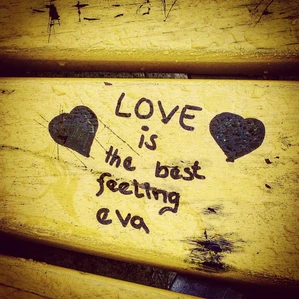 LOVE
is
the best
feeling
eva